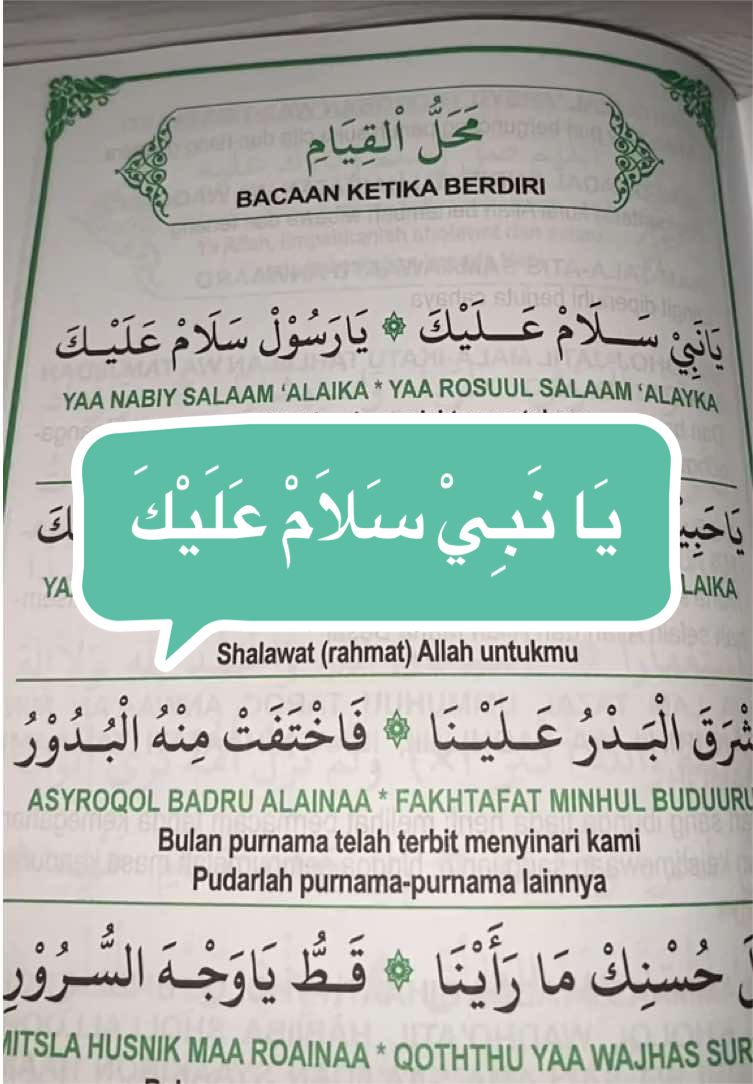 مَحَلُّ الْقِيَامِ
BACAAN KETIKA BERDIRI
يَانَبِيْ سَـلَامْ عَـلَيْكَ ۞ يَارَسُوْلْ سَلَامْ عَلَيْـكَ
YAA NABIY SALAAM ‘ALAIKA * YAA ROSUUL SALAAM ‘ALAYKA
يَا نَبِيْ سَلاَمْ عَلَيْكَ
Shalawat (rahmat) Allah untukmu
الْبَـدْرُ عَـلَيْـنَـا ۞ فَاخْتَفَتْ مِنْهُ الْبُـدُوْرُ
ASYROQOL BADRU ALAINAA * FAKHTAFAT MINHUL BUDUURU
Bulan purnama telah terbit menyinari kami
Pudarlah purnama-purnama lainnya
حُسْنِكْ مَا رَأَيْنَا ۞ قَـطُّ يَاوَجْـهَ السُّـرُوْرِ
MITSLA HUSNIK MAA ROAINAA * QOTHTHU YAA WAJHAS